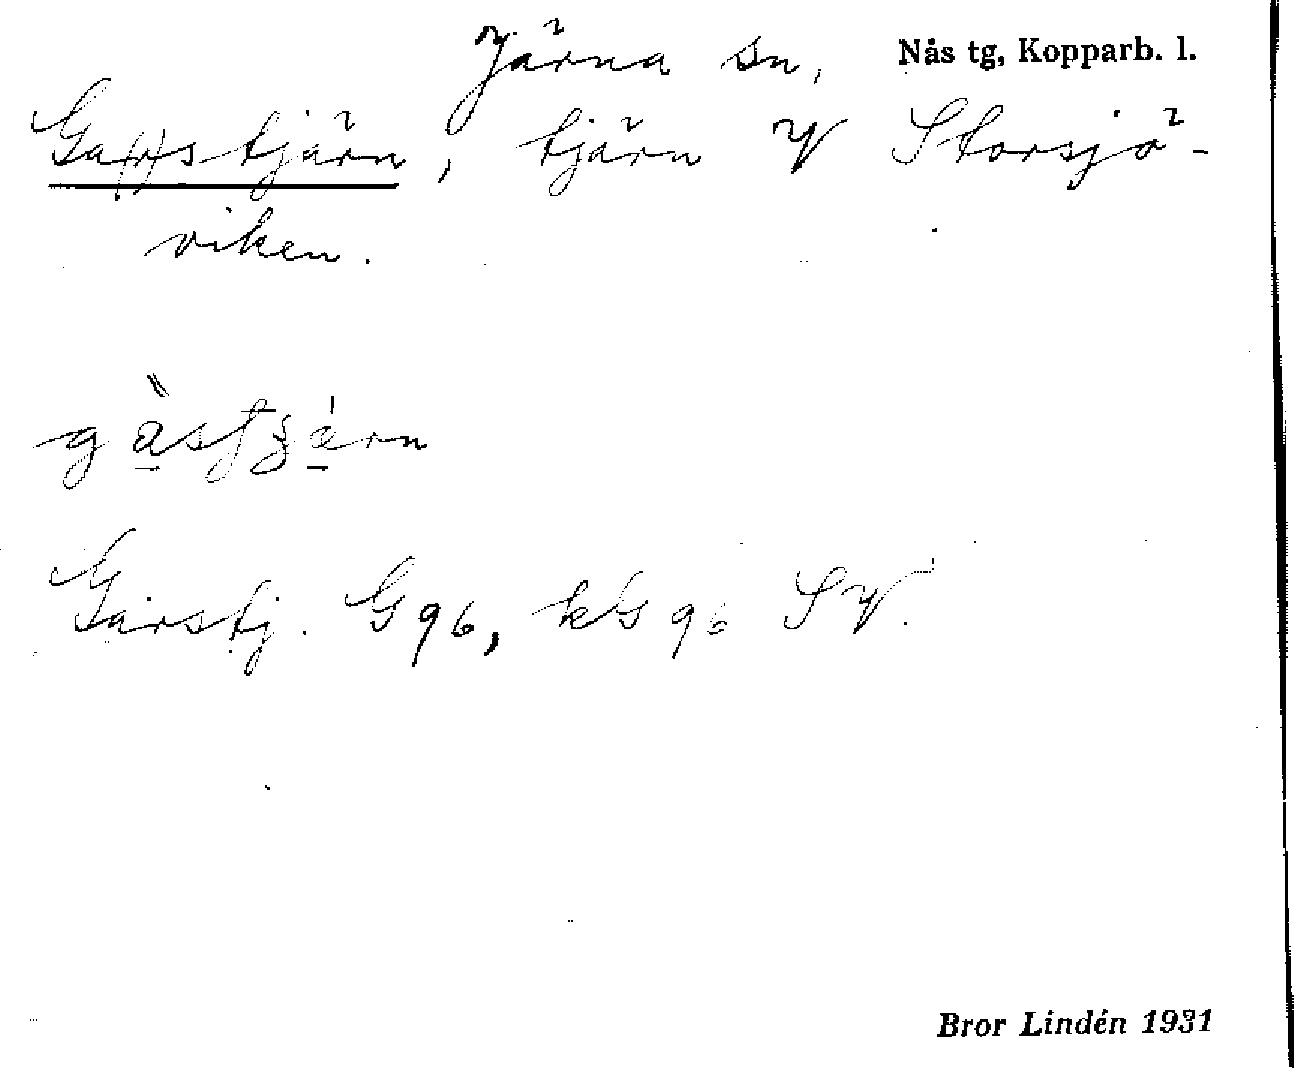 Järna sn, Nås tg, Kopparb. l.
Ga(r)stjärn, tjärn V Storsjö-
viken.
Garstj. G 96, kG 96 SV.
Bror Lindén 1931